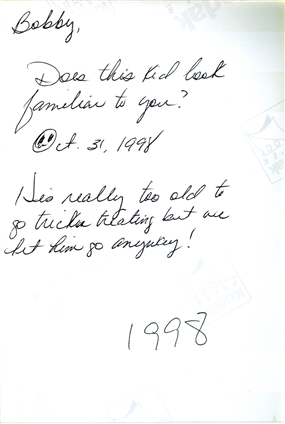 Kodak
Bobby,
Does this kid look
familiar to you?
Oct. 31, 1998
He's really too old to
go trick or treating but we
let him go anyway!
1998